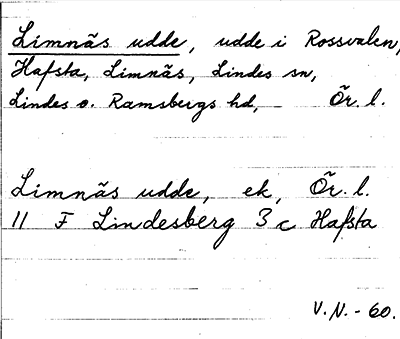 Limnäs udde, udde i Rossvalen,
Hafsta, Limnäs, Lindes sn,
Lindes o. Ramsbergs hd, - Ör. l.
Limnäs udde, ek, Ör. l.
11 F Lindesberg 3 c Hafsta
V.N. - 60.